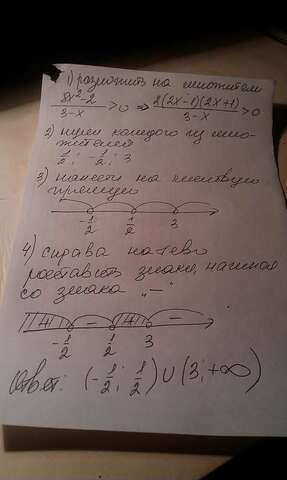 1) разложить на множители
8x²-2/3-x >0 ⇒ 2(2x-1)(2x+1)/3-x >0
2) нули каждого из мно-
жителей
1/2; -1/2; 3
3) нанести на числовую
прямую
-1/2 1/2 3
4) справа налево
расставить знаки, начиная
со знака „-"
+ - + -
-1/2 1/2 3
Ответ: (-1/2; 1/2) ∪ (3; +∞)